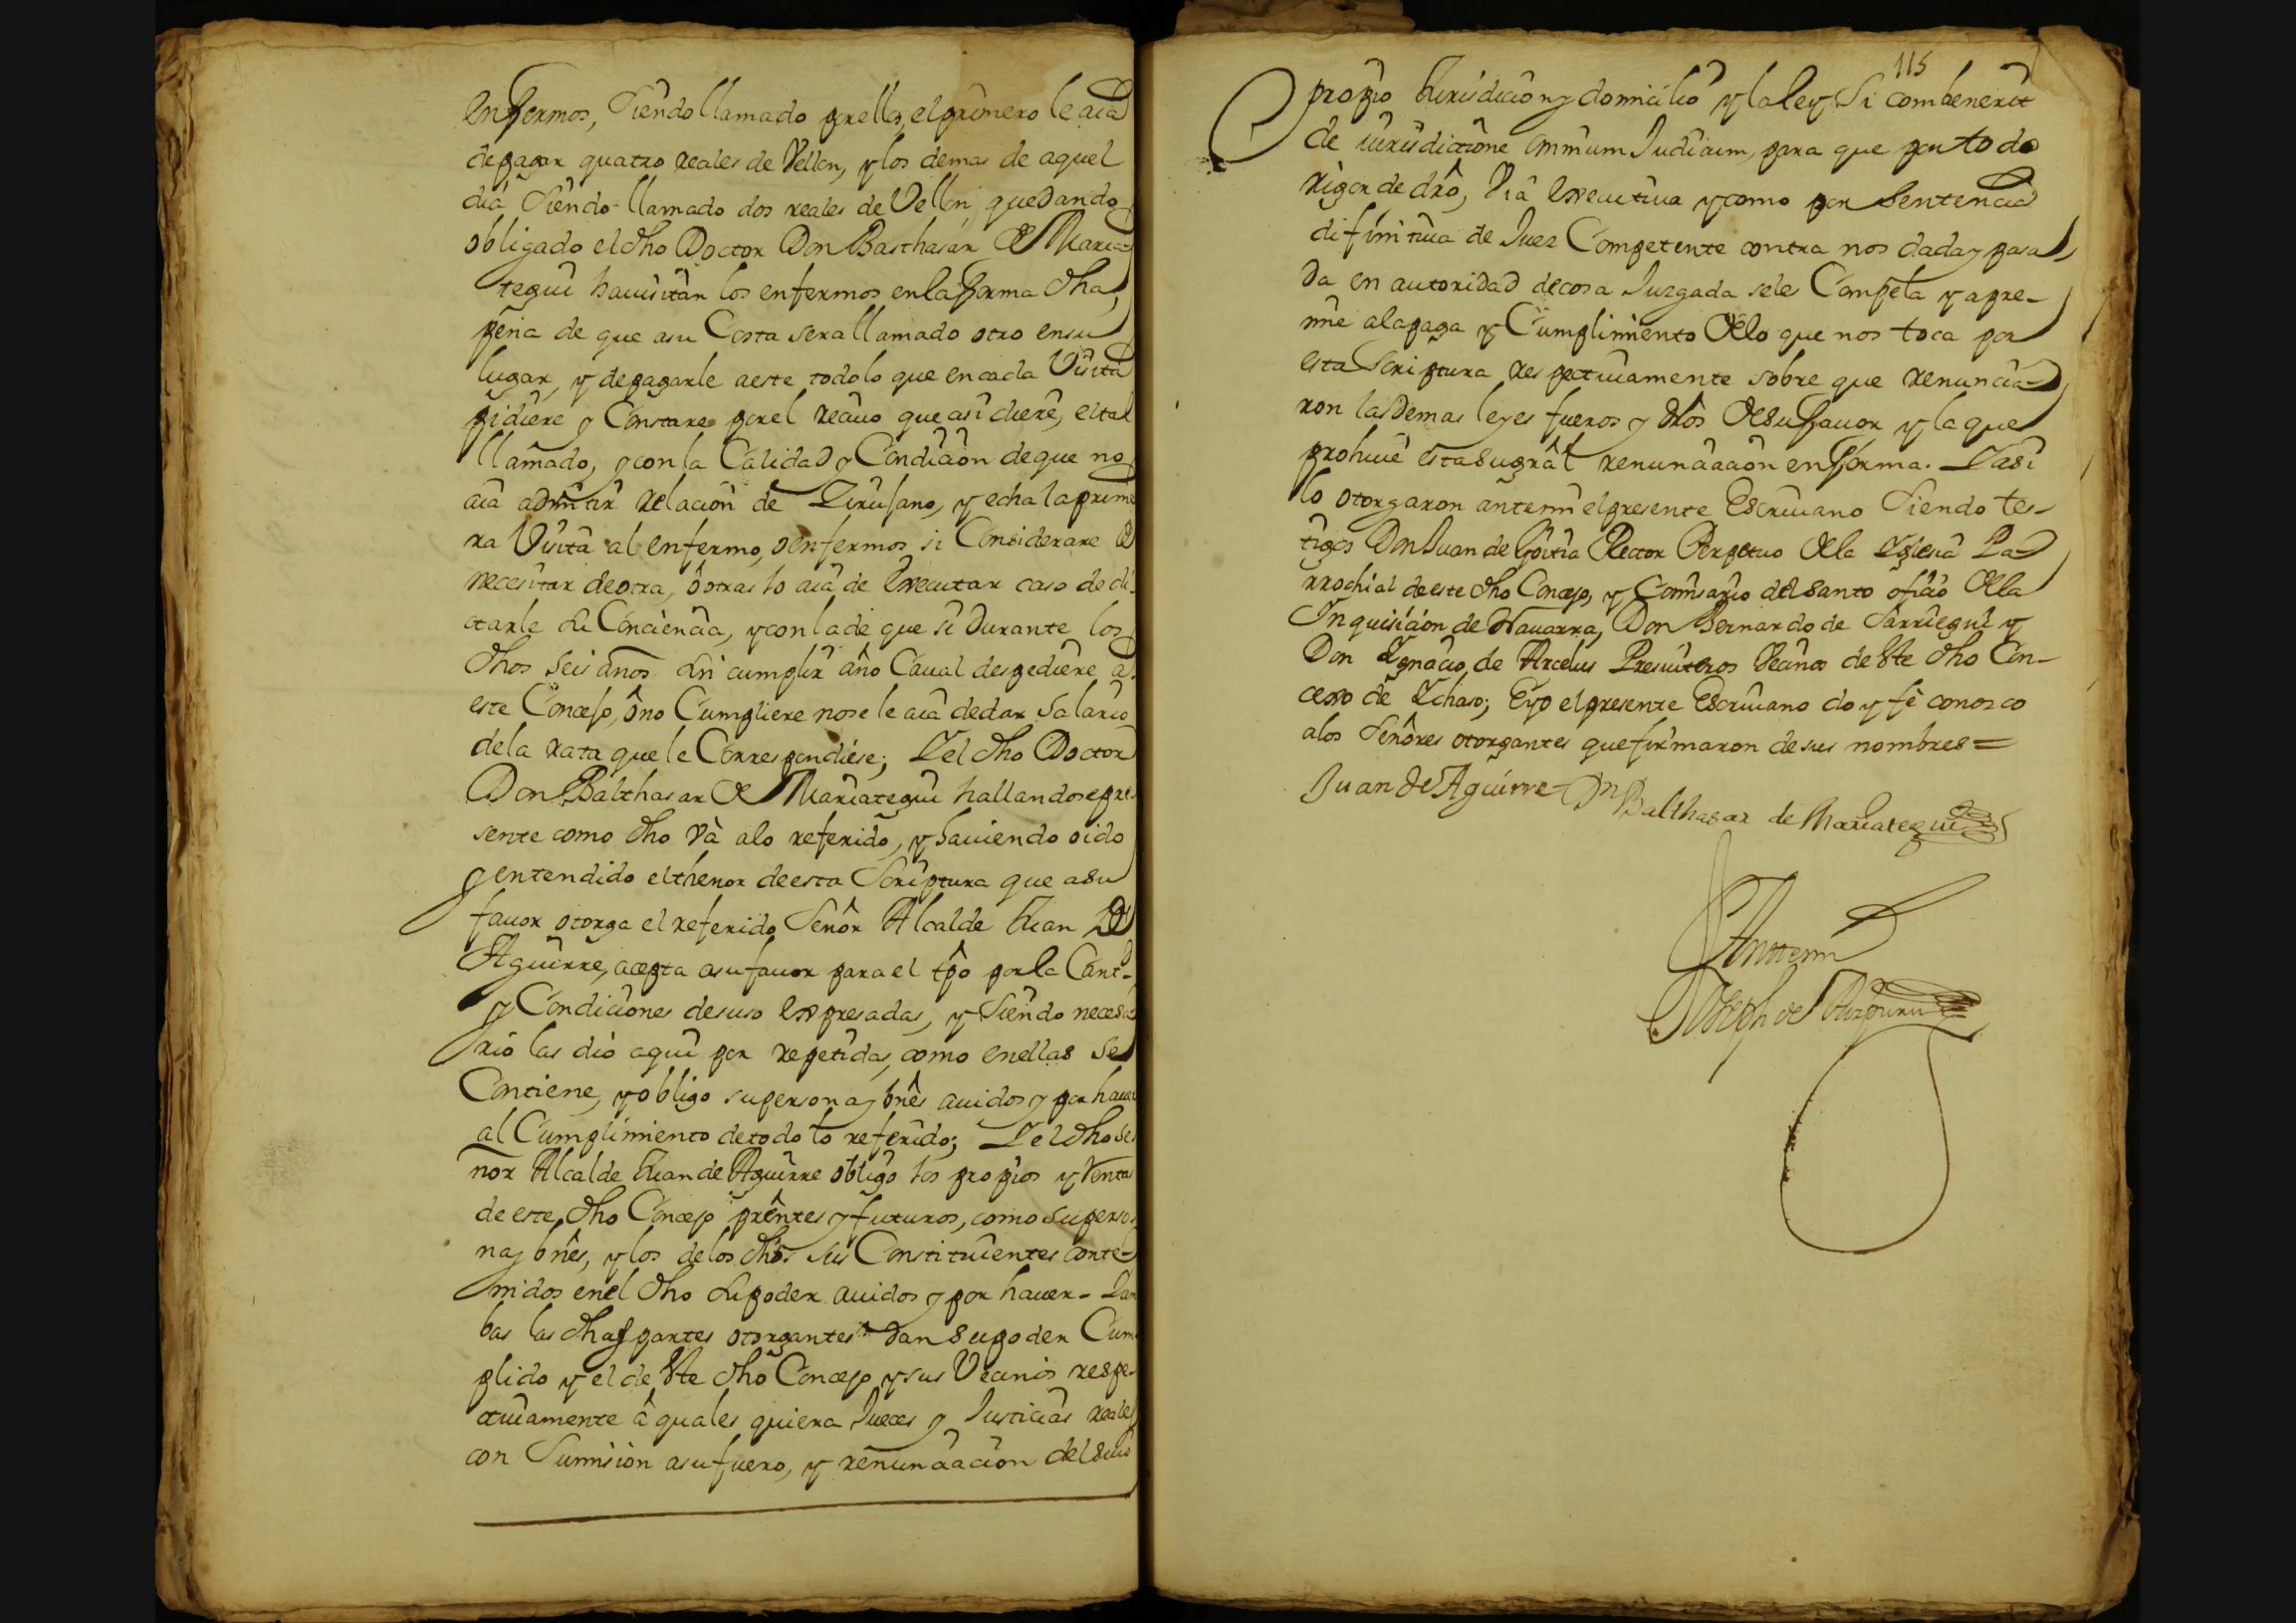 enfermos, siendo llamado por ellos, el primero le aia
de pagar quatro reales de Vellon, y los demas de aquel
dia siendo llamado dos reales de Vellon, quedando
obligado el dho Doctor Don Balthasar de Maria
tegui ha visitar los enfermos en la forma dha,
pena de que a su Costa sera llamado otro en su
lugar, y de pagarle a este todo lo que en cada Visita
pidiere y Constare por el recivo que asi diere, el tal
llamado, y con la Calidad y Condicion de que no
aia admitir relacion de Zirujano, y echa la prime
ra Visita al enfermo, o enfermos si Considerare
necesitar de otra, o otras lo aia de executar caso de di
ctarle su Conciencia, y con la de que si durante los
dhos seis años sin cumplir año Caual despediere a
este Concejo, ô no Cumpliere no se le aia de dar Salario
de la rata que le Correspondiese; Y el dho Doctor
Don Balthasar de Mariategui hallandose pre
sente como dho và a lo referido, y haviendo oido
y entendido el thenor de esta Scriptura que a su
favor otorga el referido Señor Alcalde Juan de
Aguirre, acepta a su favor para el tpô por la Cantd.
y Condiciones de suso expresadas, y siendo necesa
rio las dio aqui por repetidas, como en ellas se
Contiene, y obligo su persona y bnês avidos y por haver
al Cumplimiento de todo lo referido; Y el dho Se
ñor Alcalde Juan de Aguirre obligo los propios y Renta
de este dho Concejo prêntes y futuros, como su perso
na y bnês, y los de los dhos sus Constituientes conte
nidos en el dho su poder avidos y por haver - Yam
bas las dhas partes otorgantes dan su poder Cum
plido y el de este dho Concejo y sus Vecinos respe
ctivamente â quales quiera Jueces y Justicias reales
con Sumision a su fuero, y renunciacion del suio
115
propio Jurisdicion y domicilio y la ley Si combenerit
de iurisdictione omnium Judicum, para que por todo
rigor de drô, Via executiva y como por Sentencia
difinitiva de Juez Competente contra nos dada y pasa
da en autoridad de cosa Juzgada se les Compela y apre-
mie a la paga y Cumplimiento de lo que nos toca por
esta Scriptura respectivamente sobre que renuncia
ron las demas leyes fueros y drôs de su favor y la que
prohive esta su grâl renunciacion en forma. Y asi
lo otorgaron ante mi el presente Escrivano Siendo tes-
tigos Don Juan de Goitia Rector Perpetuo de la Yglesia Pa
rrochial de este dho Concejo, y Comisario del Santo oficio de la
Inquisicion de Navarra, Don Bernardo de Sarriegui y
Don Ygnacio de Arcelus Presviteros Vecinos de este dho Con-
cejo de Ychaso; E yo el presente Escrivano doy fê conozco
a los Señores otorgantes que firmaron de sus nombres =
Juan de Aguirre Dn Balthasar de Mariategui
Ante mi
Joseph de Aizpuru